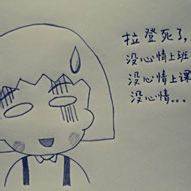 拉登死了，
没心情上班
没心情上课
没心情...